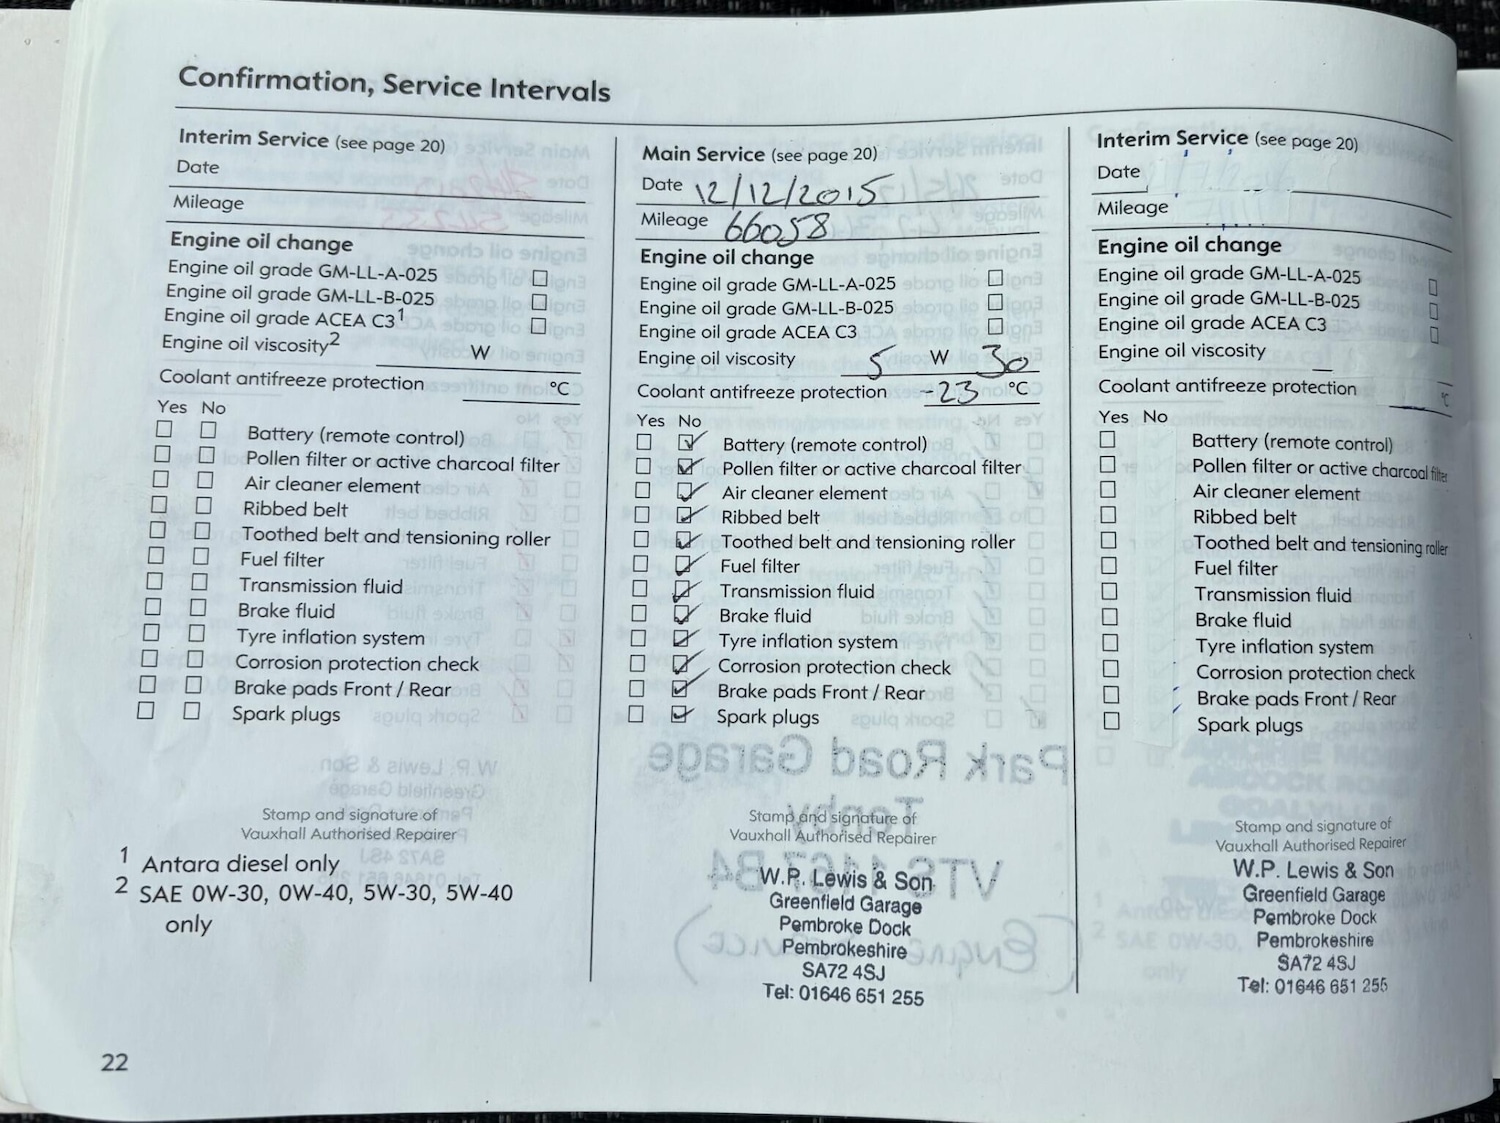 Confirmation, Service Intervals
Interim Service (see page 20)
Date
Mileage
Engine oil change
Engine oil grade GM-LL-A-025
Engine oil grade GM-LL-B-025
Engine oil grade ACEA C3¹
Engine oil viscosity² W
Coolant antifreeze protection °C
Yes No
Battery (remote control)
Pollen filter or active charcoal filter
Air cleaner element
Ribbed belt
Toothed belt and tensioning roller
Fuel filter
Transmission fluid
Brake fluid
Tyre inflation system
Corrosion protection check
Brake pads Front / Rear
Spark plugs
Stamp and signature of
Vauxhall Authorised Repairer
1 Antara diesel only
2 SAE 0W-30, 0W-40, 5W-30, 5W-40
only
22
Main Service (see page 20)
Date 12/12/2015
Mileage 66058
Engine oil change
Engine oil grade GM-LL-A-025
Engine oil grade GM-LL-B-025
Engine oil grade ACEA C3
Engine oil viscosity 5 W 30
Coolant antifreeze protection -23 °C
Yes No
Battery (remote control)
Pollen filter or active charcoal filter
Air cleaner element
Ribbed belt
Toothed belt and tensioning roller
Fuel filter
Transmission fluid
Brake fluid
Tyre inflation system
Corrosion protection check
Brake pads Front / Rear
Spark plugs
Stamp and signature of
Vauxhall Authorised Repairer
W.P. Lewis & Son
Greenfield Garage
Pembroke Dock
Pembrokeshire
SA72 4SJ
Tel: 01646 651 255
Interim Service (see page 20)
Date
Mileage
Engine oil change
Engine oil grade GM-LL-A-025
Engine oil grade GM-LL-B-025
Engine oil grade ACEA C3
Engine oil viscosity
Coolant antifreeze protection °C
Yes No
Battery (remote control)
Pollen filter or active charcoal filter
Air cleaner element
Ribbed belt
Toothed belt and tensioning roller
Fuel filter
Transmission fluid
Brake fluid
Tyre inflation system
Corrosion protection check
Brake pads Front / Rear
Spark plugs
Stamp and signature of
Vauxhall Authorised Repairer
W.P. Lewis & Son
Greenfield Garage
Pembroke Dock
Pembrokeshire
SA72 4SJ
Tel: 01646 651 255